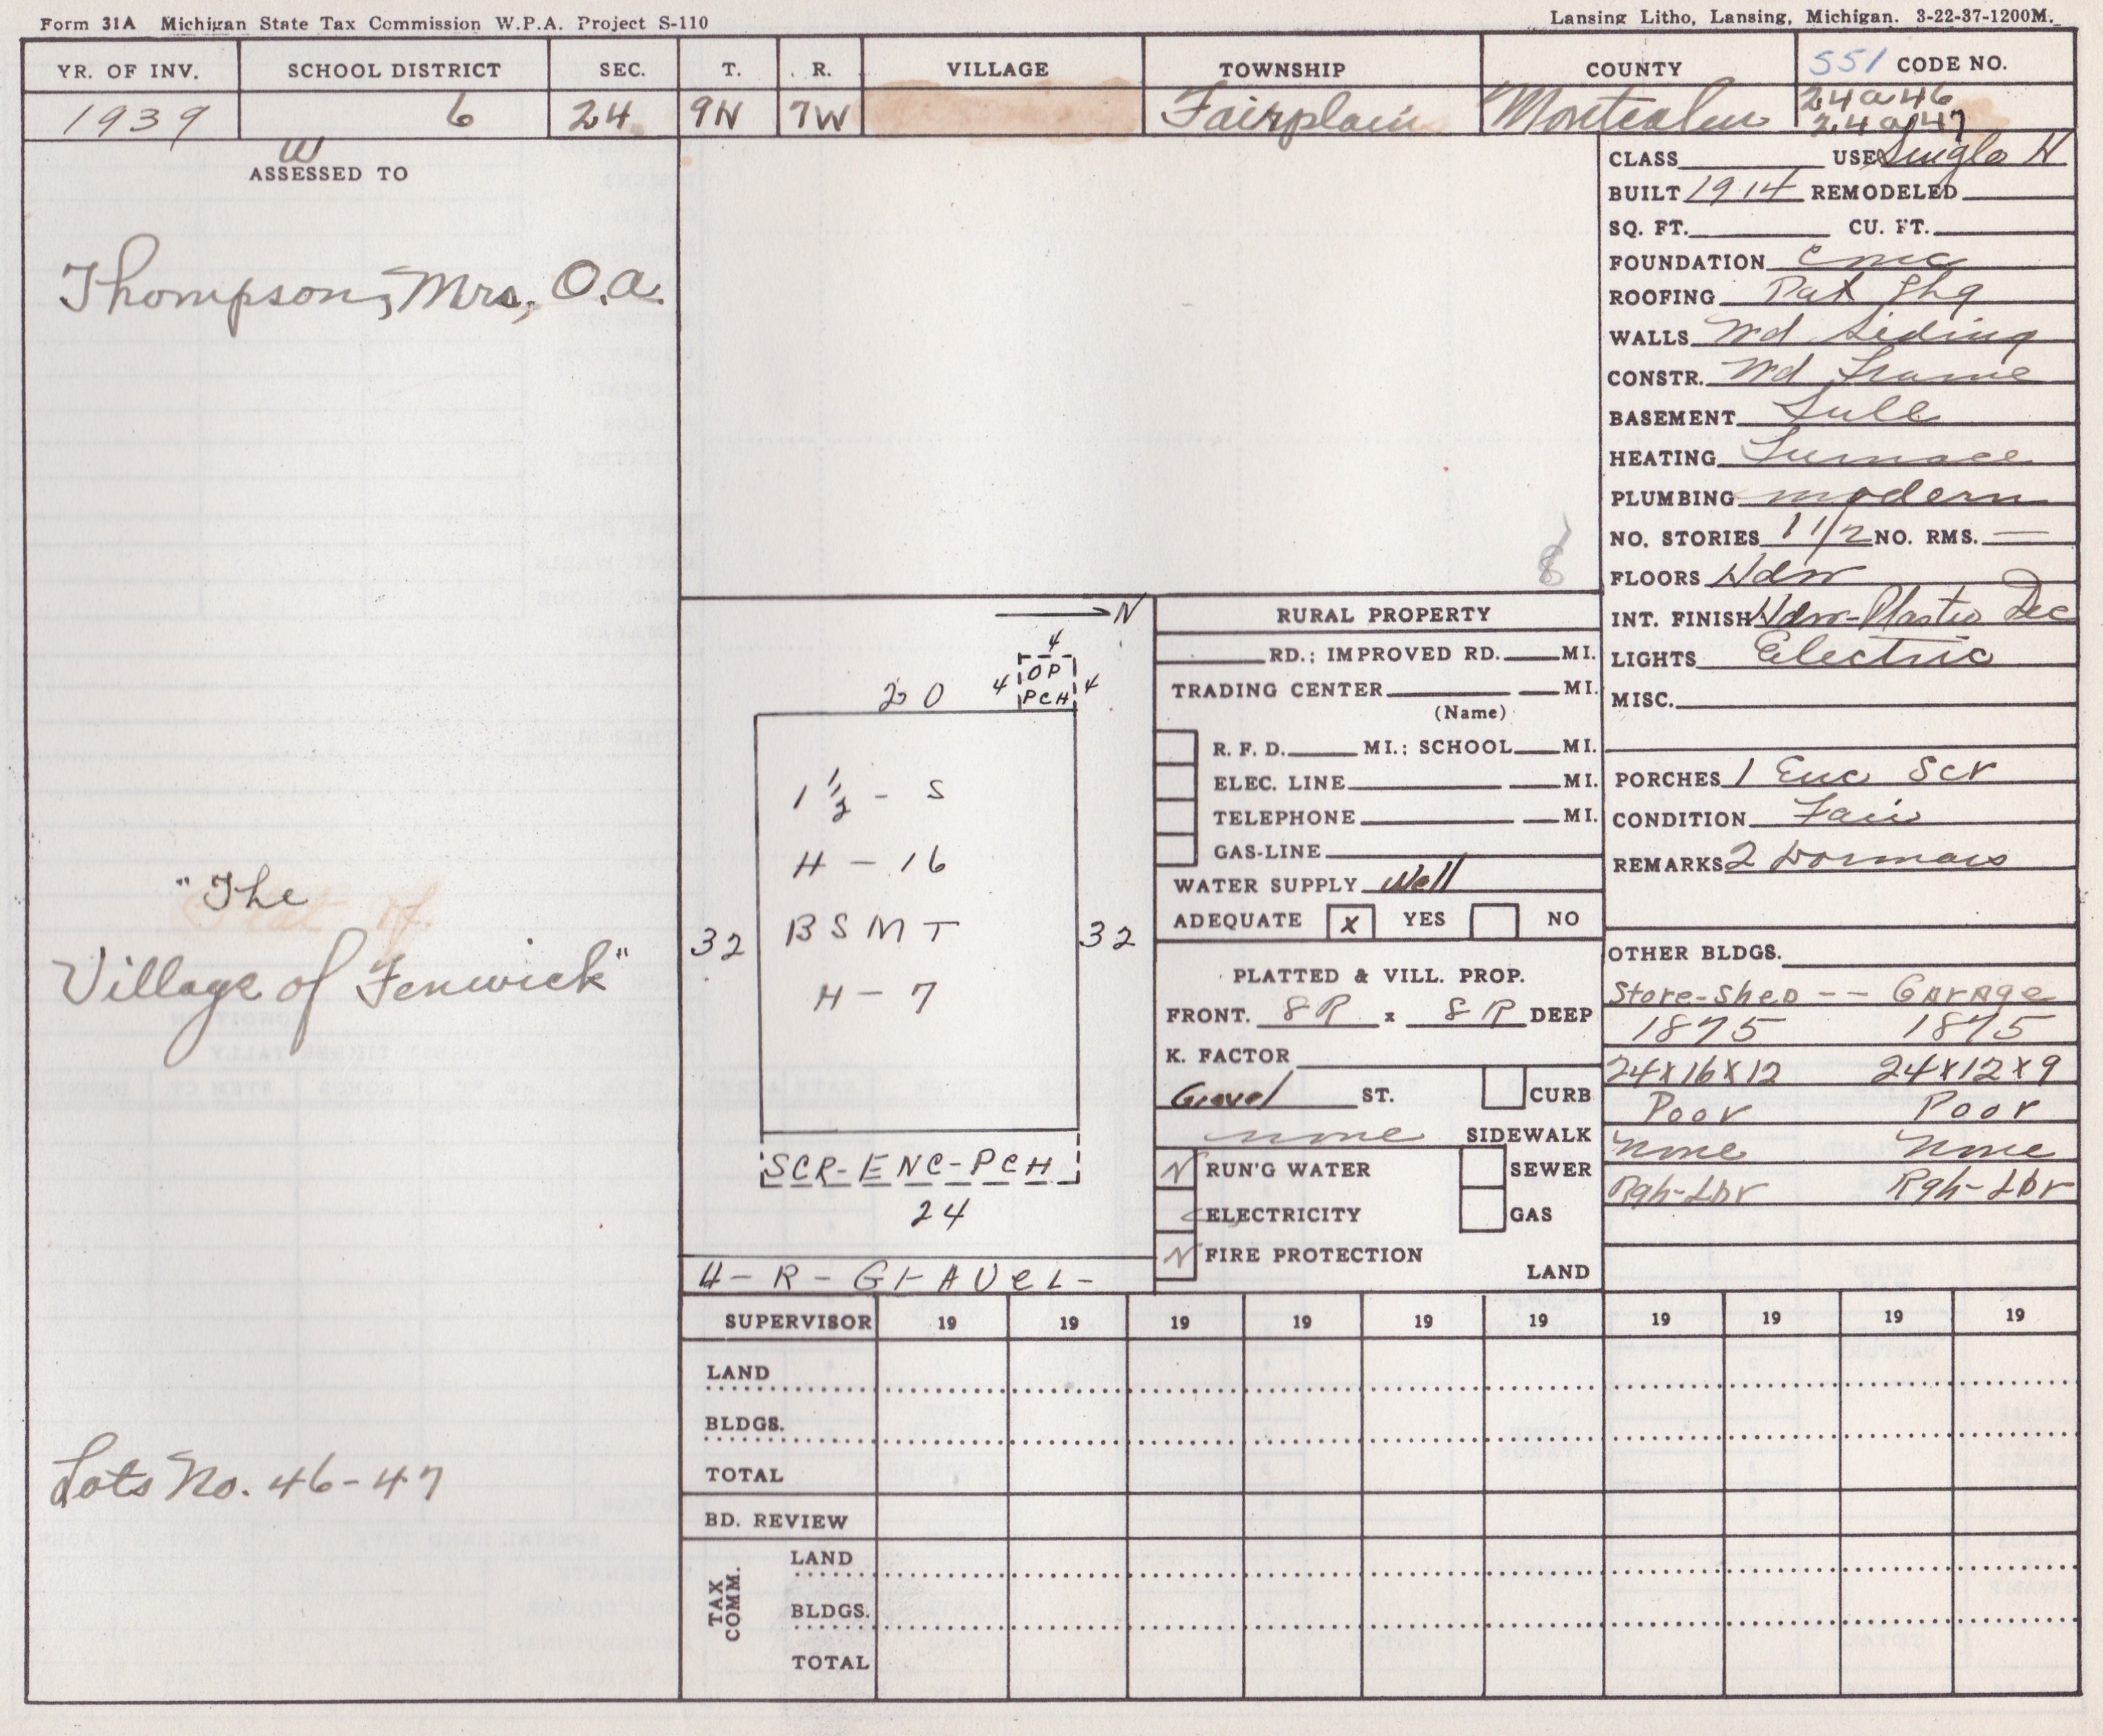 Form 31A Michigan State Tax Commission W.P.A. Project S-110
Lansing Litho, Lansing, Michigan. 3-22-37-1200M.
YR. OF INV. SCHOOL DISTRICT SEC. T. R. VILLAGE TOWNSHIP COUNTY 551 CODE NO.
1939 6 24 9N 7W Fairplain Montcalm 24a46
24a47
W
ASSESSED TO
Thompson, Mrs, O.a.
"The
Village of Fenwick"
Lots No. 46-47
8
CLASS USE Single H
BUILT 1914 REMODELED
SQ. FT. CU. FT.
FOUNDATION Cmc
ROOFING Pat Shg
WALLS Wd Siding
CONSTR. Wd Frame
BASEMENT Full
HEATING Furnace
PLUMBING modern
NO. STORIES 1 1/2 NO. RMS. —
FLOORS Hdw
INT. FINISH Hdw-Plastio Dec
LIGHTS Electric
MISC.
PORCHES 1 Enc Scr
CONDITION Fair
REMARKS 2 Dormars
OTHER BLDGS.
Store-Shed -- Garage
1875 1875
24x16x12 24x12x9
Poor Poor
none none
Rgh-Lbr Rgh-Lbr
N
4
4 OP 4
PCH
20
1 1/2 - S
H - 16
32 BSMT 32
H - 7
SCR-ENC-PCH
24
4-R-GrAVeL-
RURAL PROPERTY
RD.; IMPROVED RD. MI.
TRADING CENTER MI.
(Name)
R. F. D. MI.; SCHOOL MI.
ELEC. LINE MI.
TELEPHONE MI.
GAS-LINE
WATER SUPPLY Well
ADEQUATE x YES NO
PLATTED & VILL. PROP.
FRONT. 8R x 8R DEEP
K. FACTOR
Gravel ST. CURB
none SIDEWALK
N RUN'G WATER SEWER
ELECTRICITY GAS
N FIRE PROTECTION
LAND
SUPERVISOR 19 19 19 19 19 19 19 19 19 19
LAND
BLDGS.
TOTAL
BD. REVIEW
TAX COMM.
LAND
BLDGS.
TOTAL